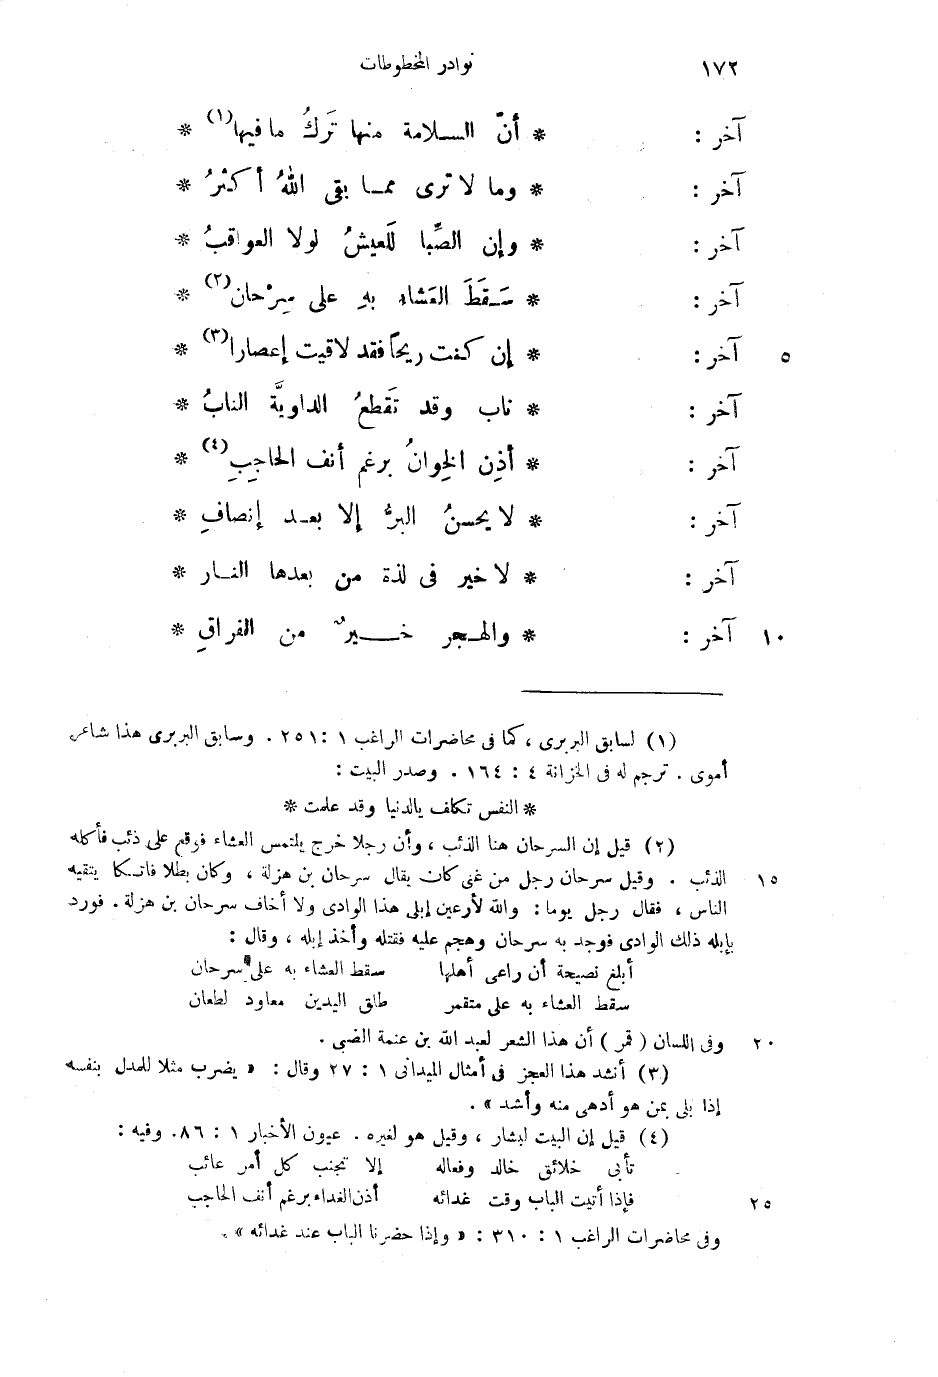 ١٧٢ نوادر المخطوطات
آخر : * أنّ السلامة منها تَركُ ما فيها(١) *
آخر : * وما لا ترى مما بقى اللهُ أكثرُ *
آخر : * وإن الصِّبا لَلعيشُ لولا العواقبُ *
آخر : * سَقَطَ العَشاء بهِ على سِرْحان(٢) *
٥ آخر : * إن كنت ريحاً فقد لاقيت إعصارا(٣) *
آخر : * ناب وقد تَقطعُ الداويَّة النابُ *
آخر : * أذِن الخِوانُ برغم أنف الحاجِبِ(٤) *
آخر : * لا يحسنُ البرُّ إلا بعد إنصافِ *
آخر : * لا خير فى لذة من بعدها النار *
١٠ آخر : * والهجر خير من الفراقِ *
(١) لسابق البربرى ، كما فى محاضرات الراغب ١ : ٢٥١ . وسابق البربرى هذا شاعر
أموى . ترجم له فى الخزانة ٤ : ١٦٤ . وصدر البيت :
* النفس تكلف بالدنيا وقد علمت *
(٢) قيل إن السرحان هنا الذئب ، وأن رجلا خرج يلتمس العشاء فوقع على ذئب فأكله
١٥ الذئب . وقيل سرحان رجل من غنى كان يقال سرحان بن هزلة ، وكان بطلا فاتكا يتقيه
الناس ، فقال رجل يوما : والله لأرعين إبلى هذا الوادى ولا أخاف سرحان بن هزلة . فورد
بإبله ذلك الوادى فوجد به سرحان وهجم عليه فقتله وأخذ إبله ، وقال :
أبلغ نصيحة أن راعى أهلها سقط العشاء به على سرحان
سقط العشاء به على متقمر طلق اليدين معاود لطعان
٢٠ وفى اللسان ( قمر ) أن هذا الشعر لعبد الله بن عنمة الضبى .
(٣) أنشد هذا العجز فى أمثال الميدانى ١ : ٢٧ وقال : « يضرب مثلا للمدل بنفسه
إذا بلى بمن هو أدهى منه وأشد » .
(٤) قيل إن البيت لبشار ، وقيل هو لغيره . عيون الأخبار ١ : ٨٦. وفيه :
تأبى خلائق خالد وفعاله إلا تجنب كل أمر عائب
٢٥ فإذا أتيت الباب وقت غدائه أذن الغداء برغم أنف الحاجب
وفى محاضرات الراغب ١ : ٣١٠ : « وإذا حضرنا الباب عند غدائه » .